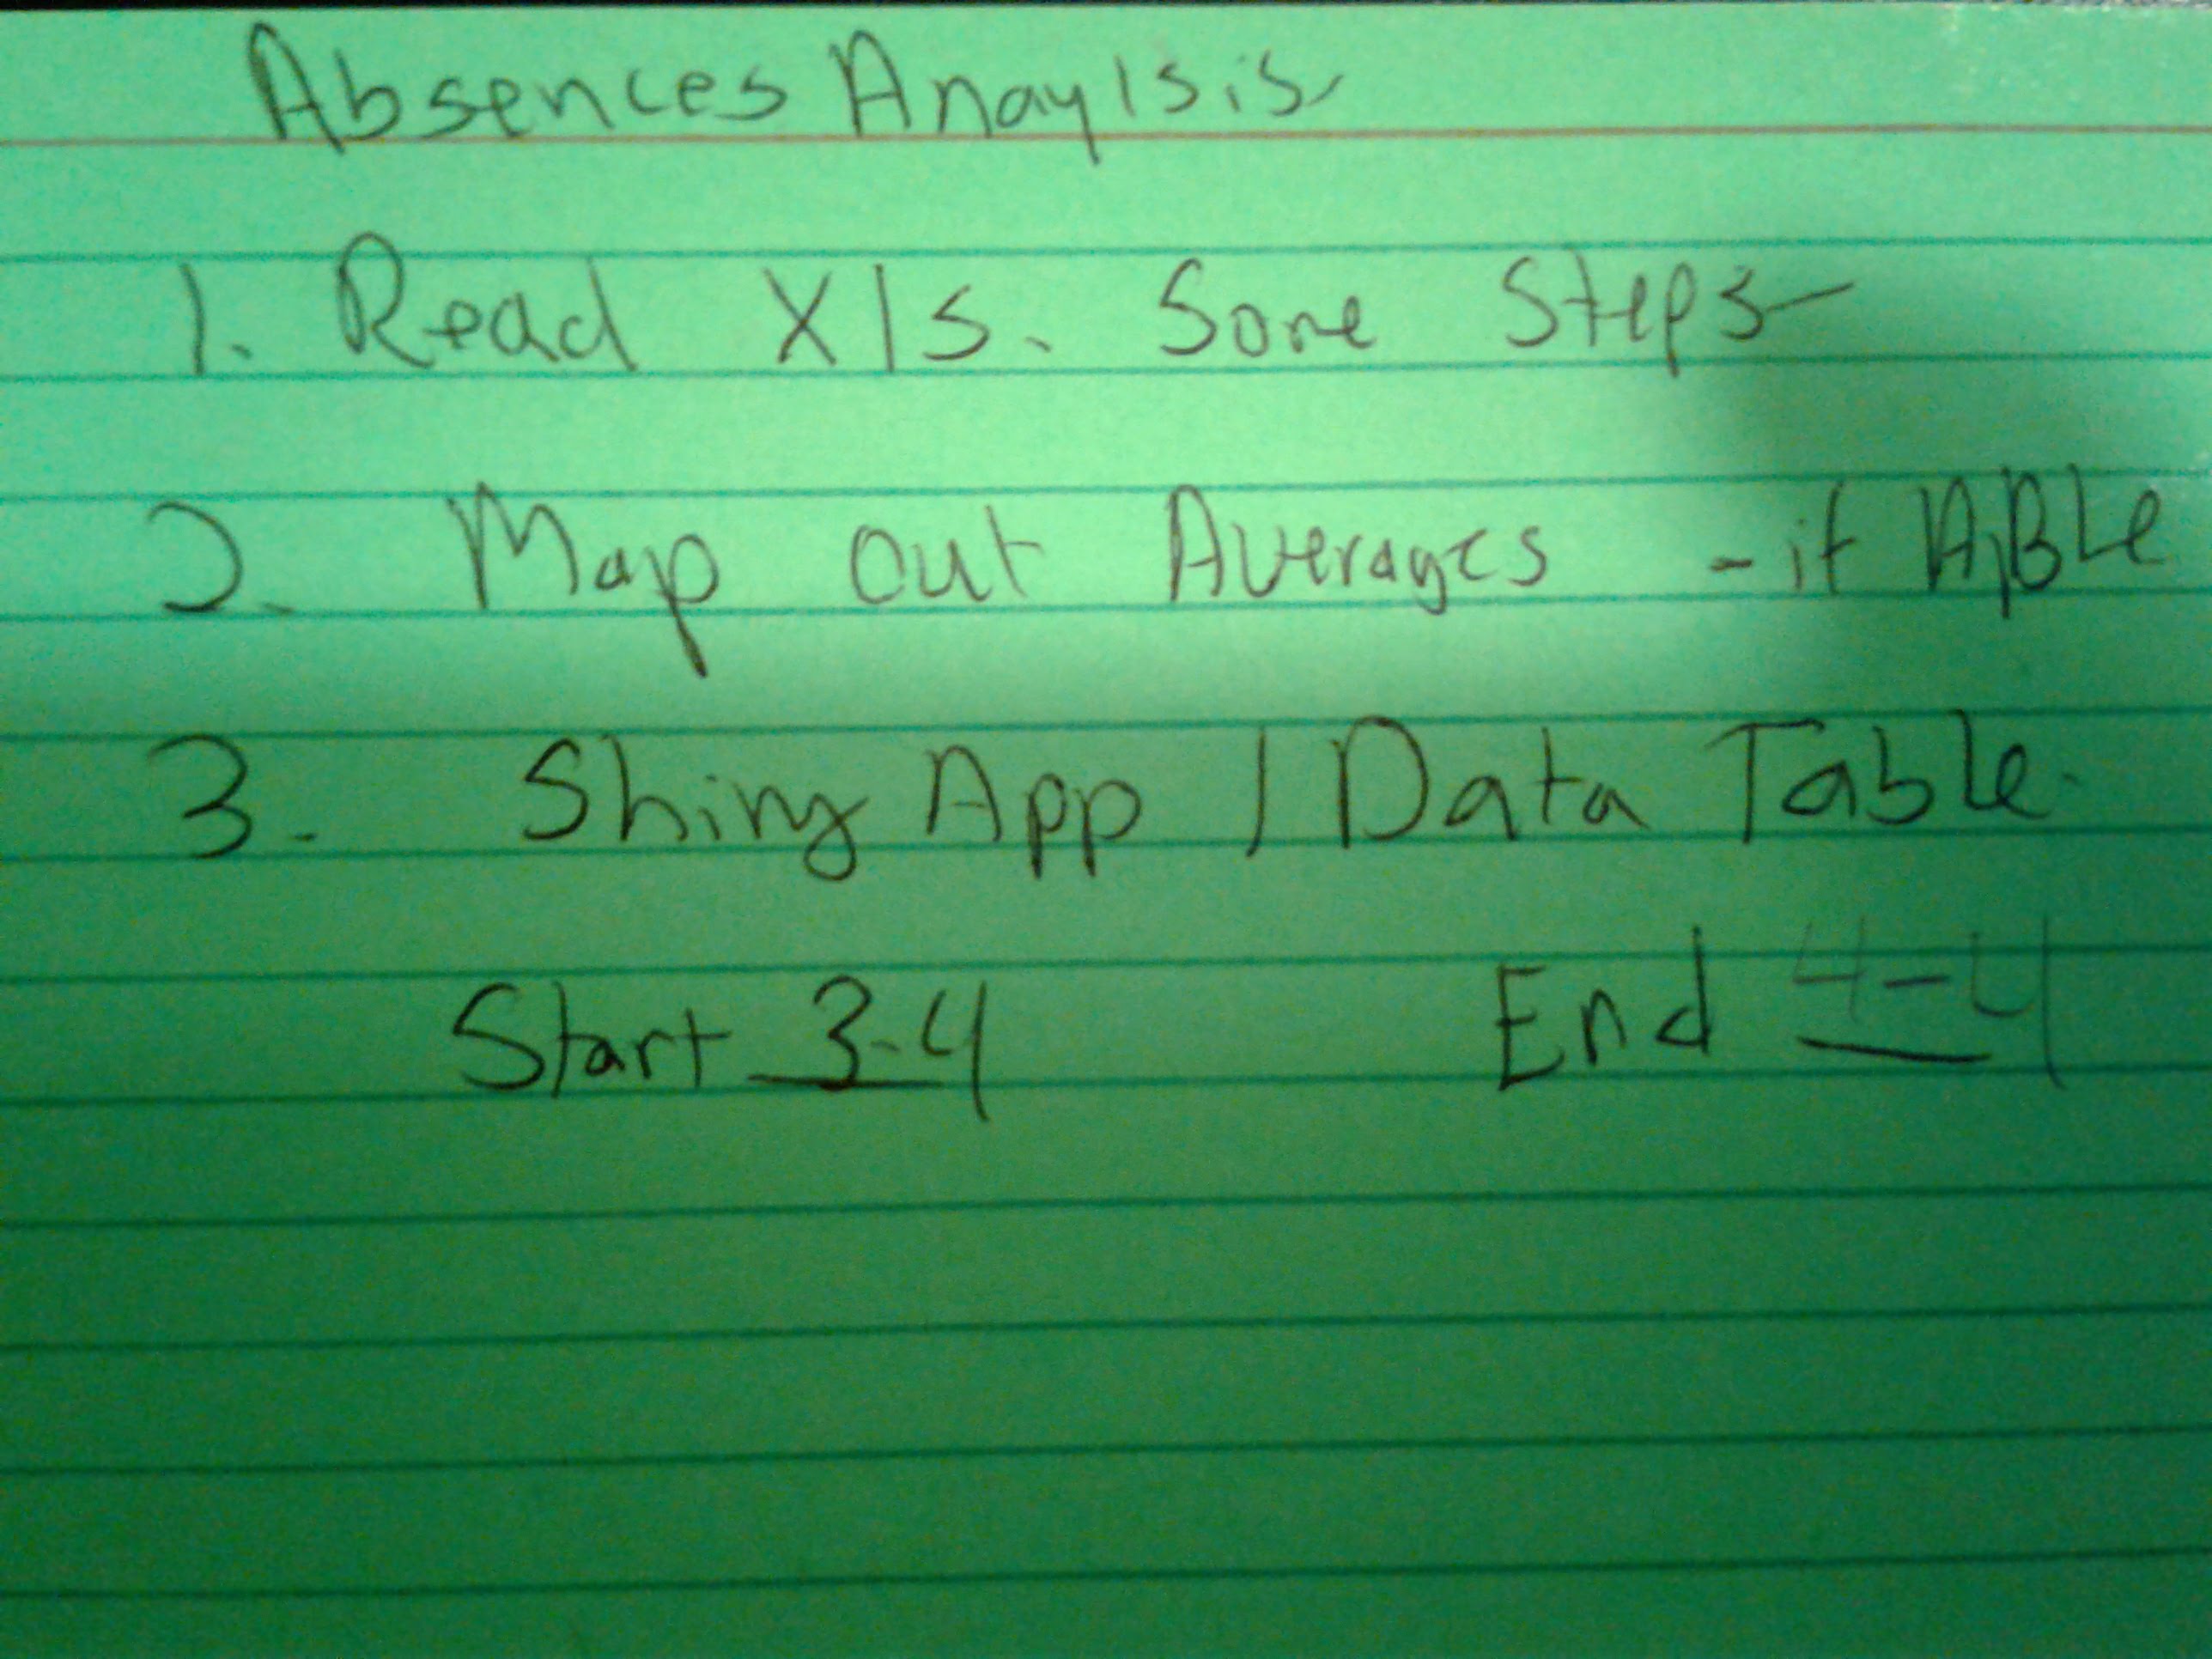 Absences Anaylsis
1. Read Xls. Some Steps
2. Map out Averages - if Able
3. Shiny App | Data Table.
Start 3-4 End 4-4